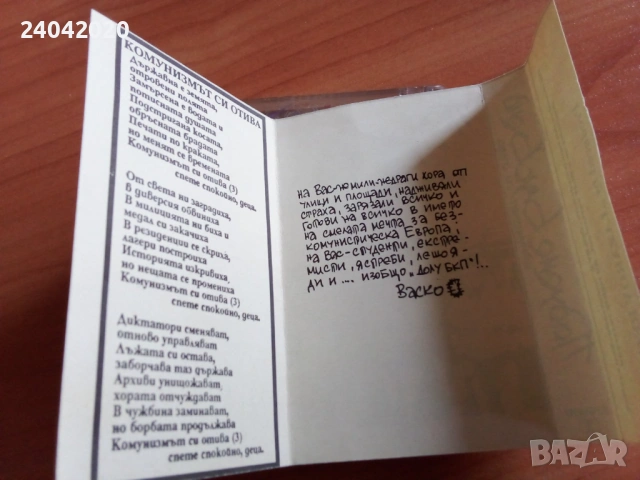 24042020
КОМУНИЗМЪТ СИ ОТИВА
Държавна е земята,
отровени полята
Замърсена е водата и
потисната душата
Подстригана косата,
обръсната брадата
Печати по краката,
но менят се времената
Комунизмът си отива (3)
спете спокойно, деца.
От света ни заградиха,
в диверсия обвиниха
В милицията ни биха и
медал си закачиха
В резиденции се скриха,
лагери построиха
Историята изкривиха,
но нещата се промениха
Комунизмът си отива (3)
спете спокойно, деца.
Диктатори сменяват,
отново управляват
Лъжата си остава,
заборчава таз държава
Архиви унищожават,
хората отчуждават
В чужбина заминават,
но борбата продължава
Комунизмът си отива (3)
спете спокойно, деца.
на Вас-мили-недраги хора от
улици и площади, надживели
страха, зарязали всичко и
готови на всичко в името
на смелата мечта за без-
комунистическа Европа;
на Вас-студенти, екстре-
мисти, ястреби, лешоя-
ди и ... изобщо „Долу БКП"!..
Васко
BAZAR
.bg